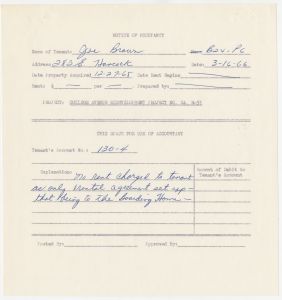 NOTICE OF OCCUPANCY
Name of Tenant: Joe Brown
Address: 282 S. Hancock Date: 3-16-66
Date Property Acquired 12-27-65 Date Rent Begins
Rent: $ — per — Prepared by:
PROJECT: REDEVELOPMENT PROJECT NO.
THIS SPACE FOR USE OF ACCOUNTANT
Tenant's Account No.: 130-4
Explanation: No rent charged to tenant
as only rental agreement set up
that being to the Boarding Home —
Amount of Debit to
Tenant's Account
Posted By: Approved By: